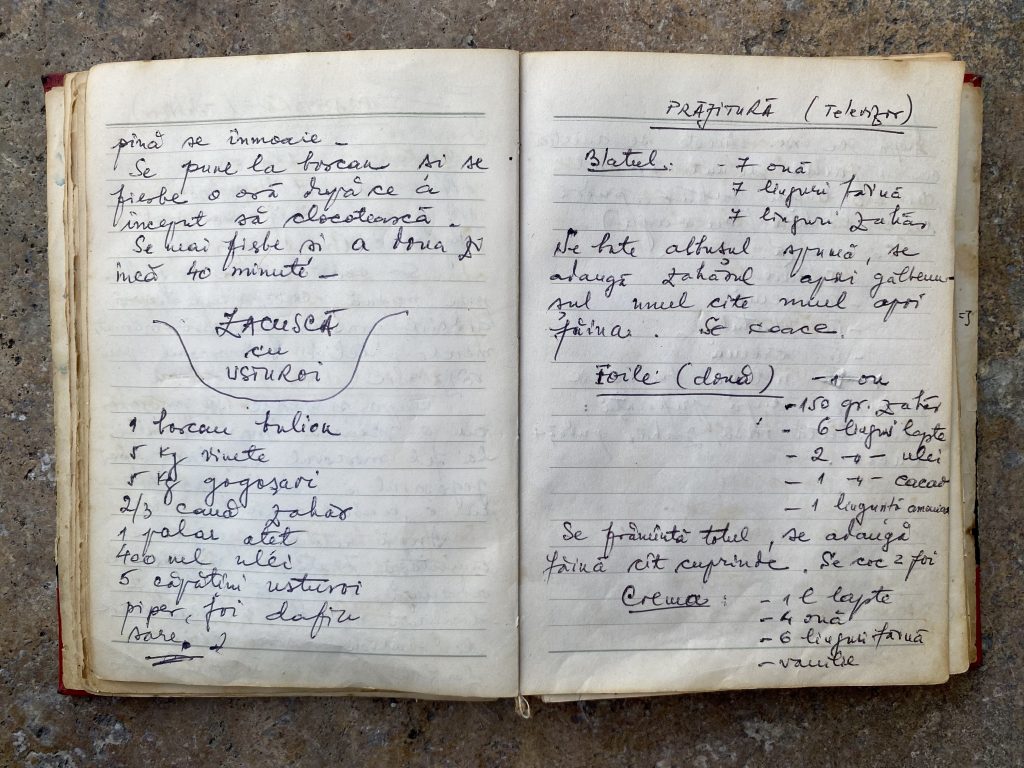 pînă se înmoaie –
Se pune la borcan si se
fierbe o oră după ce a
început să clocotească.
Se mai fierbe si a doua zi
încă 40 minute –
ZACUSCĂ
cu
USTUROI
1 borcan bulion
5 Kg vinete
5 Kg gogoșari
2/3 cană zahăr
1 pahar oțet
400 ml ulei
5 căpățîni usturoi
piper, foi dafin
sare.
PRĂJITURĂ (Televizor)
Blatul: - 7 ouă
7 linguri făină
7 linguri zahăr
Se bate albusul spumă, se
adaugă zahărul apoi gălbenu-
sul unul cîte unul apoi
făina. Se coace.
Foile (două) - 1 ou
- 150 gr. zahăr
- 6 linguri lapte
- 2 -〃- ulei
- 1 -〃- cacao
- 1 linguriță amoniac
Se frămîntă totul, se adaugă
făină cît cuprinde. Se coc 2 foi
Crema: - 1 l lapte
- 4 ouă
- 6 linguri făină
- vanilie